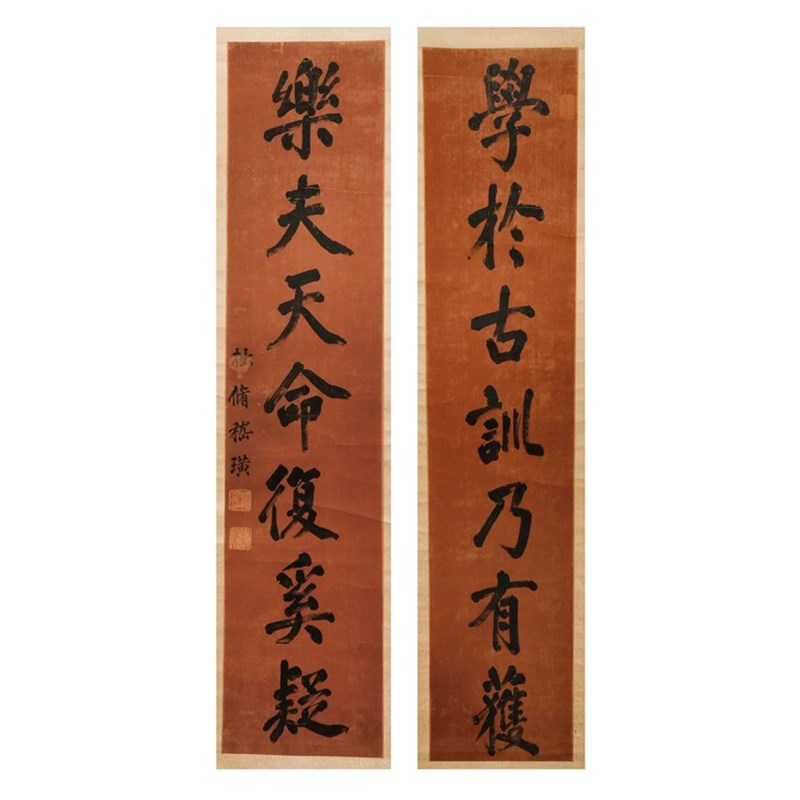 學於古訓乃有獲
樂夫天命復奚疑
拙脩嵇璜